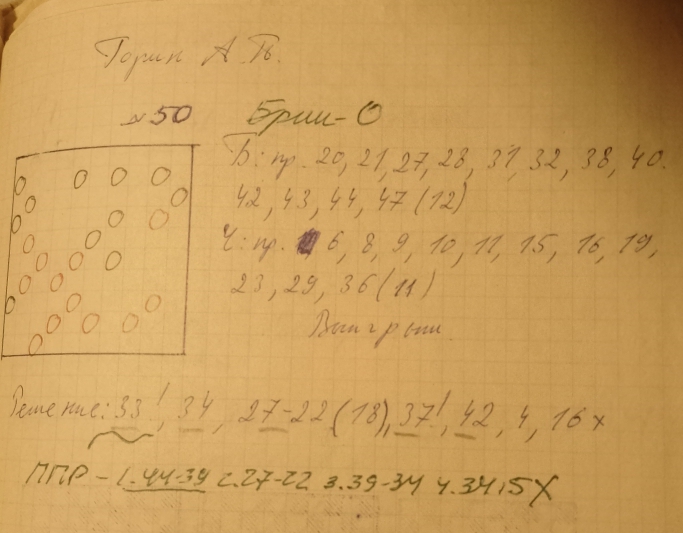 Горин А.В.
№50 Блиц-О
Б: пр. 20, 21, 27, 28, 31, 32, 38, 40.
42, 43, 44, 47 (12)
Ч: пр. 6, 8, 9, 10, 11, 15, 16, 19,
23, 29, 36 (11)
Выигрыш.
Решение: 33!, 34, 27-22 (18), 37!, 42, 4, 16x
ППР - 1.44-39 2.27-22 3.39-34 4.34:5X